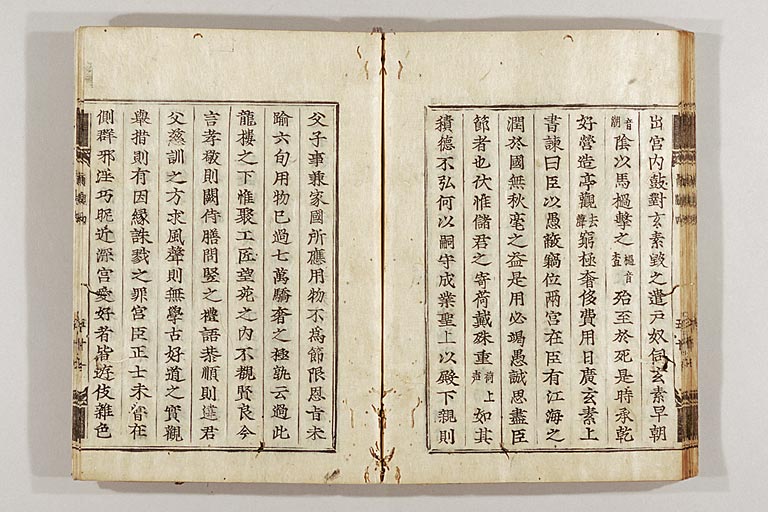 出宮内鼓對玄素毀之遣戸奴伺玄素早朝
音朝陰以馬檛擊之檛音查殆至於死是時承乾
好營造亭觀去聲窮極奢侈費用日廣玄素上
書諫曰臣以愚蔽竊位兩宮在臣有江海之
潤於國無秋毫之益是用必竭愚誠思盡臣
節者也伏惟儲君之寄荷戴殊重荷上声如其
積德不弘何以嗣守成業聖上以殿下親則
父子事兼家國所應用物不為節限恩旨未
踰六旬用物已過七萬驕奢之極孰云過此
龍樓之下惟聚工匠望苑之内不覩賢良今
言孝敬則闕侍膳問竪之禮語恭順則違君
父慈訓之方求風聲則無學古好道之實觀
舉措則有因緣誅戮之罪宮臣正士未嘗在
側群邪淫巧昵近深宮愛好者皆遊伎雜色